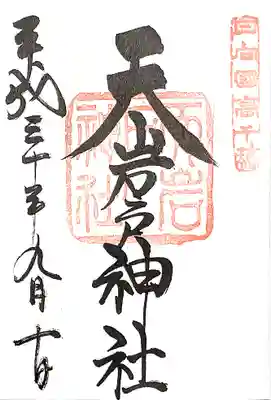 日向国高千穂
天岩戸神社
天岩戸神社
平成三十年九月十日